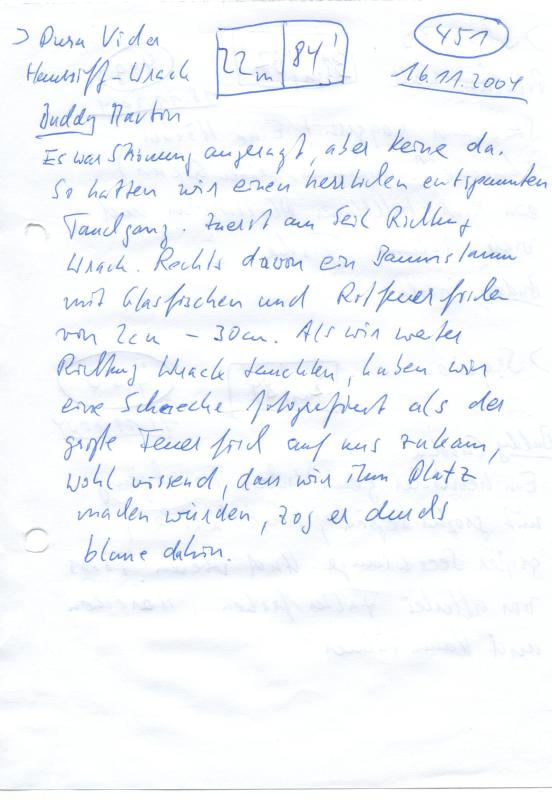 > Pura Vida
22m 84'
451
Hausriff-Wrack
16.11.2004
Buddy Marton
Es war Strömung angesagt, aber keine da.
So hatten wir einen herrlichen entspannten
Tauchgang. Zuerst am Seil Richtung
Wrack. Rechts davon ein Baumstamm
mit Glasfischen und Rotfeuerfischen
von 2cm - 30cm. Als wir weiter
Richtung Wrack tauchten, haben wir
eine Schnecke fotografiert als der
große Feuerfisch auf uns zukam,
wohl wissend, dass wir ihm Platz
machen würden, zog er durchs
blaue dahin.